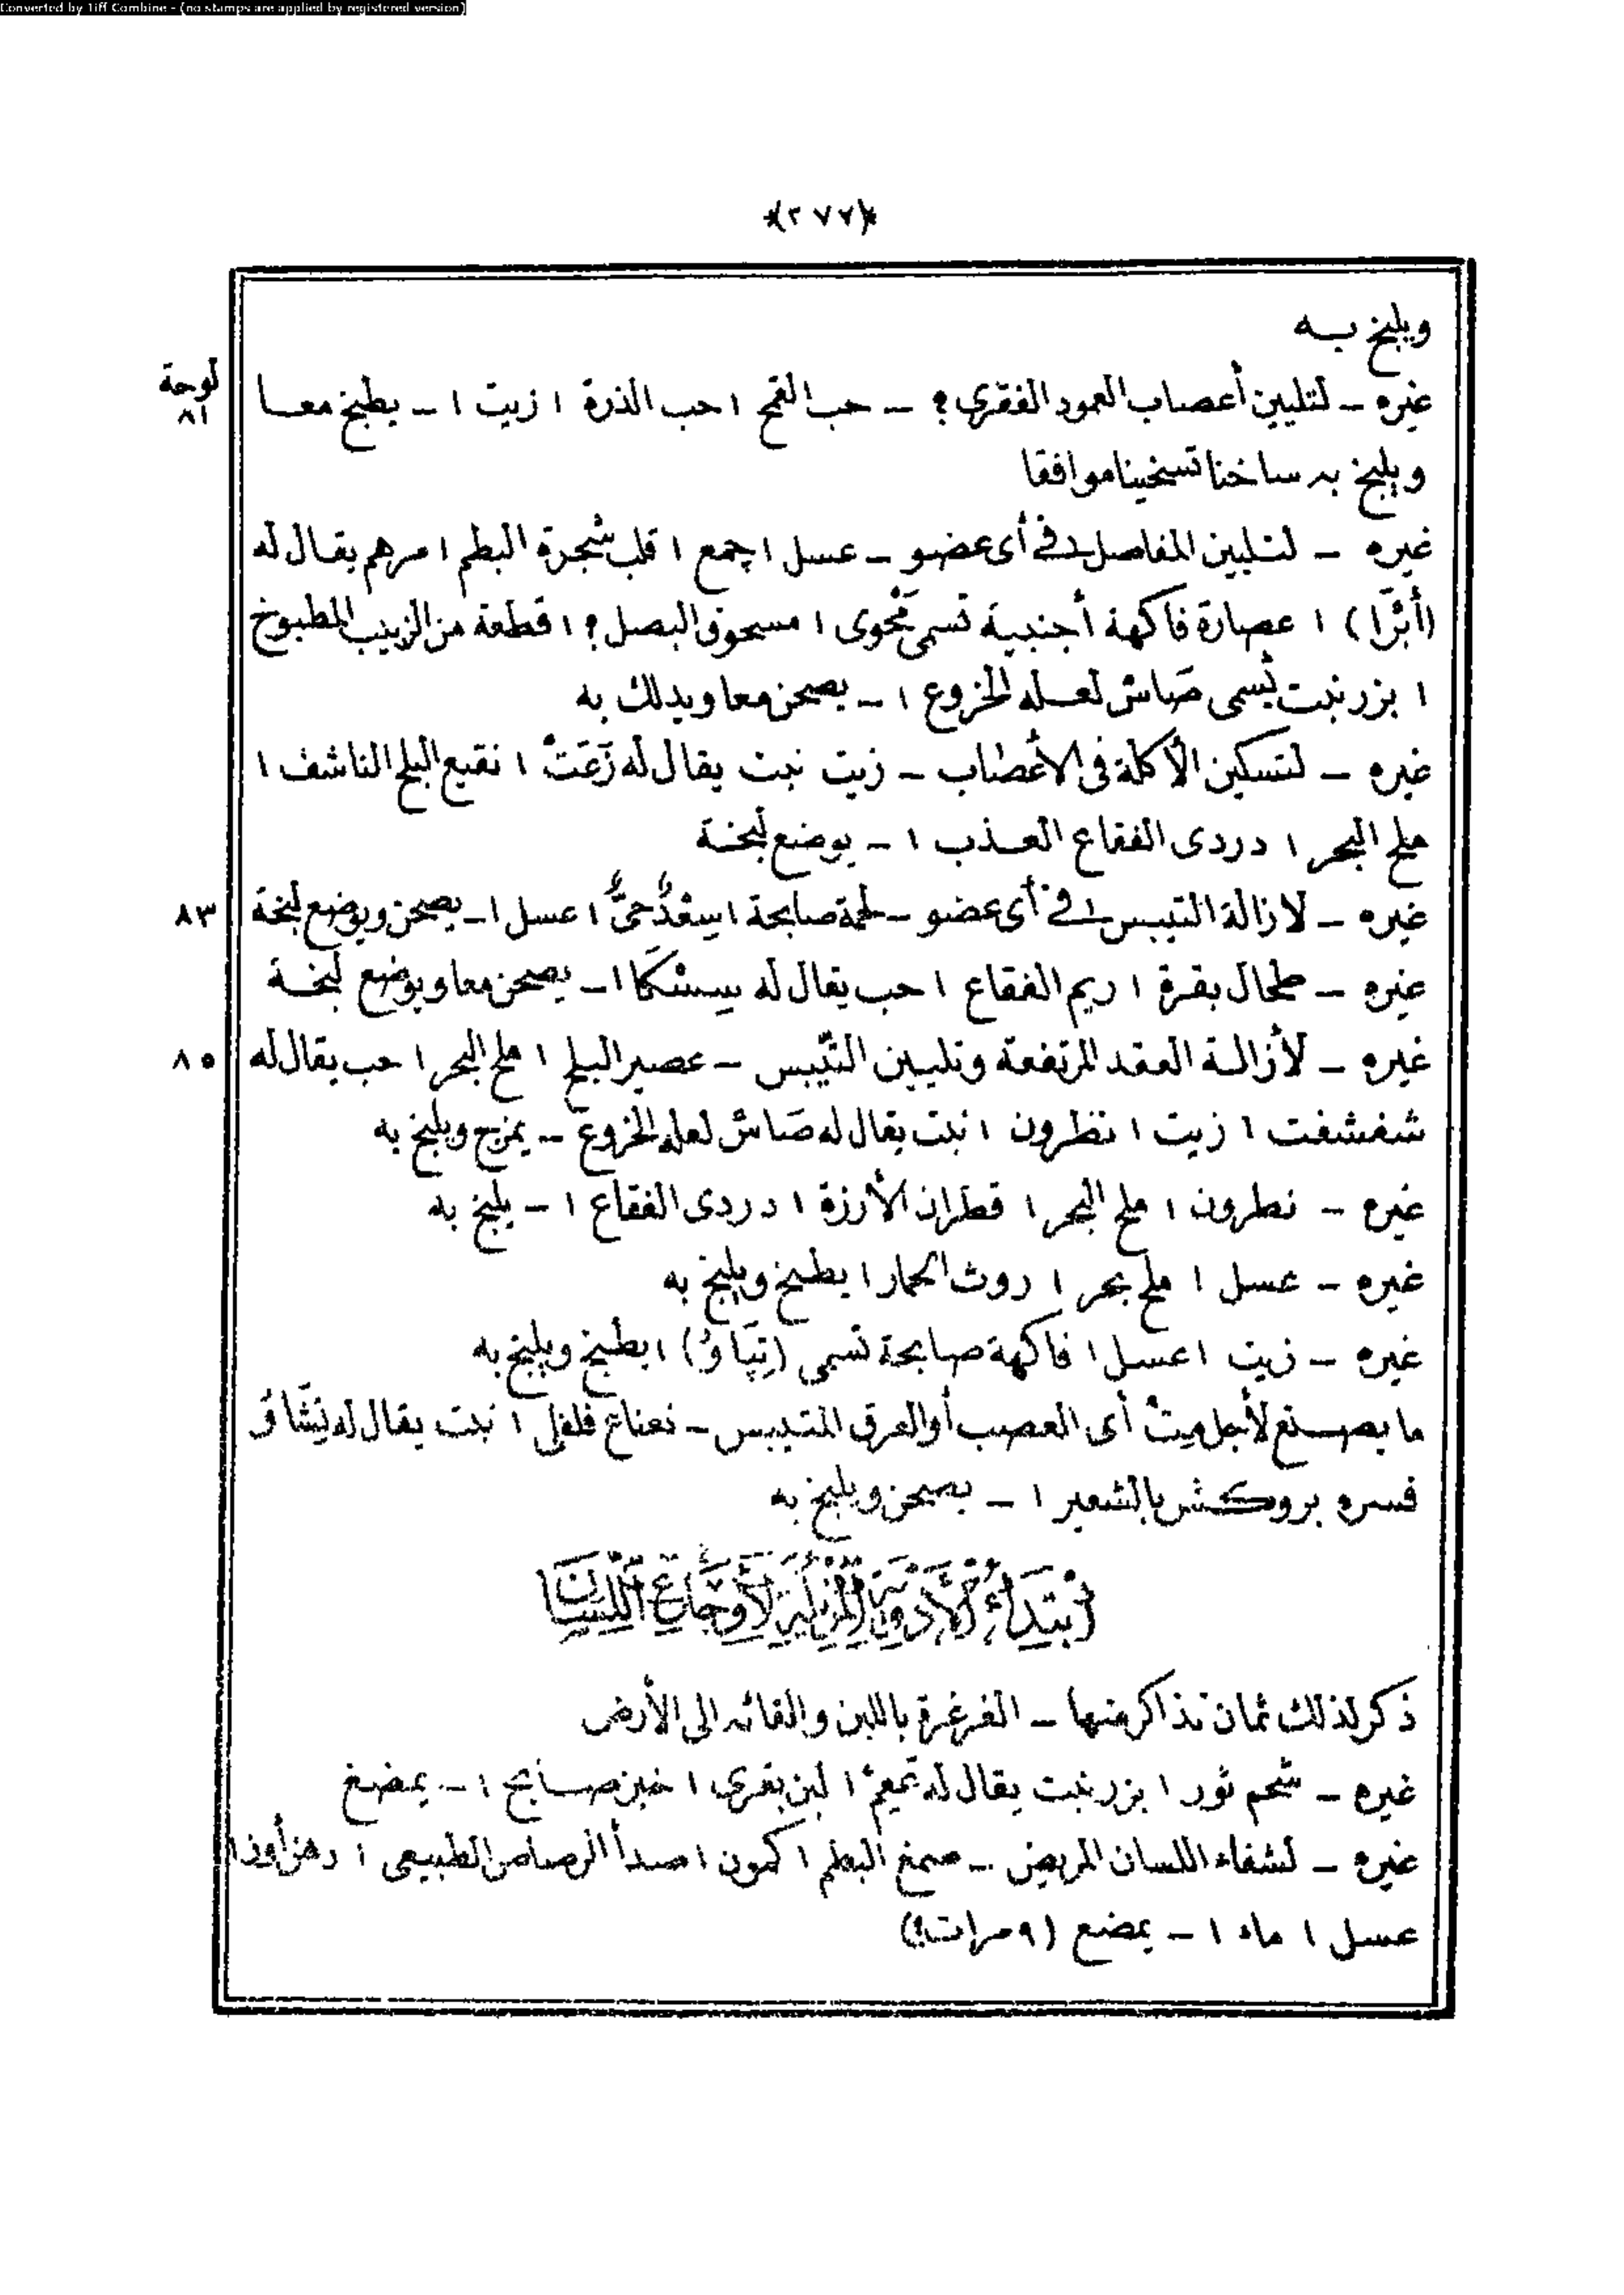 Converted by Tiff Combine - (no stamps are applied by registered version)
﴿٢٧٧﴾
ويلبخ به
لوحة ٨١
غيره – لتليين أعصاب العمود الفقري ؟ – حب القمح ١ حب الذرة ١ زيت ١ – يطبخ معا
ويلبخ به ساخنا تسخينا موافقا
غيره – لتليين المفاصل في أى عضو – عسل ١ جمع ١ قلب شجرة البطم ١ مرهم يقال له
(أَبْرَا) ١ عصارة فاكهة أجنبية تسمى مَحْوى ١ مسحوق البصل ؟ ١ قطعة من الزينب المطبوخ
١ بزر نبت تسمى صَاش لعله الخروع ١ – يصحن معا ويدلك به
غيره – لتسكين الأكلة فى الأعصاب – زيت نبت يقال له ١ نقيع البلح الناشف ١
ملح البحر ١ دردى الفقاع العذب ١ – يوضع لبخة
غيره – لازالة التيبس في أى عضو – لحمة صابحة ١ ١ عسل ١ – يصحن ويوضع لبخة
٨٣
غيره – طحال بقرة ١ ريم الفقاع ١ حب يقال له سِسْكَا ١ – يصحن معا ويوضع لبخة
غيره – لأزالة العقد المرتفعة وتليين التيبس – عصير البلح ١ ملح البحر ١ حب يقال له
٨٥
شفشفت ١ زيت ١ نظرون ١ نبت يقال له صَاش لعله الخروع – يمزج ويلبخ به
غيره – نطرون ١ ملح البحر ١ قطران الأرزة ١ دردى الفقاع ١ – يلبخ به
غيره – عسل ١ ملح بحر ١ روث الحمار ١ يطبخ ويلبخ به
غيره – زيت ١ عسل ١ فاكهة صابحة تسمى (تِپَاوُ) ١ يطبخ ويلبخ به
ما يصنع لأجل مِيتْ أى العصب أو العرق المتيبس – نعناع فلفلى ١ نبت يقال له
فسره بروكش بالشعير ١ – يصحن ويلبخ به
اِبْتِدَاءُ الْأَدْوِيَةِ الْمُزِيلَةِ لِأَوْجَاعِ اللِّسَانِ
ذكر لذلك ثمان تذاكر منها – الغرغرة باللبن والقائه الى الأرض
غيره – شحم ثور ١ بزر نبت يقال له ١ لبن بقرى ١ خبز صابح ١ – يمضغ
غيره – لشفاء اللسان المريض – صمغ البطم ١ كمون ١ صدأ الرصاص الطبيعى ١ دهن أوز ١
عسل ١ ماء ١ – يمضع (٩ مرات !)